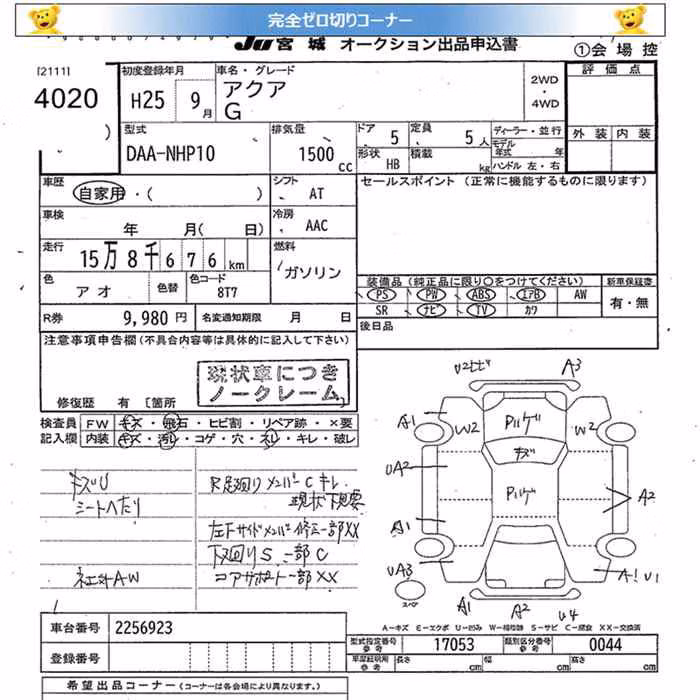 完全ゼロ切りコーナー
JU宮城 オークション出品申込書
①会場控
[2111]
4020
)
初度登録年月
H25 9月
車名・グレード
アクア
G
2WD
・
4WD
評価点
外装 内装
型式
DAA-NHP10
排気量
1500cc
ドア 5
定員 5人
形状 HB
積載 kg
ディーラー・並行
モデル年式 年
ハンドル 左・右
車歴
自家用・( )
シフト
AT
セールスポイント (正常に機能するものに限ります)
車検
年 月( 日)
冷房
AAC
走行
15万8千676km
燃料
ガソリン
色
アオ
色替
色コード
8T7
装備品 (純正品に限り○をつけてください)
PS PW ABS エアB AW
SR ナビ TV カワ
新車保証書
有・無
R券 9,980円
名変通知期限 月 日
後日品
注意事項申告欄 (不具合内容等は具体的に記入して下さい)
現状車につき
ノークレーム
修復歴 有 [箇所
検査員
記入欄
FW キズ・飛石・ヒビ割・リペア跡・×要
内装 キズ・汚レ・コゲ・穴・スレ・キレ・破レ
キズU
シートへたり
社外AW
R足廻りメンバーCキレ
現状下見要
左下サイドメンバー修正一部XX
下廻りS一部C
コアサポート一部XX
U2ヒビ
A3
A1
W2
バルゲ
W2
キズ
UA2
バルゲ
A2
A1
UA3
スペア
A1
A2
U4
A1U1
A-キズ E-エクボ U-凹み W-補修跡 S-サビ C-腐食 XX-交換済
車台番号 2256923
型式指定番号 参考 17053
類別区分番号 参考 0044
登録番号
車庫証明用 参考
長さ cm
幅 cm
高さ cm
希望出品コーナー (コーナーは各会場により異なります。)